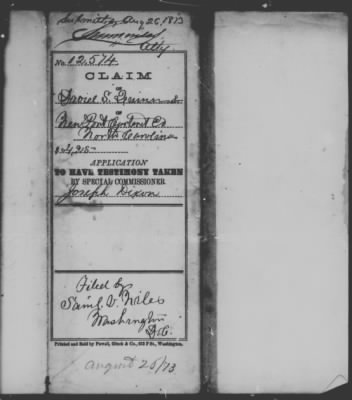 Submitted Aug 26, 1873
Atty
No. 12,574
CLAIM
OF
Daniel S. Quinn
OF
New Port Carteret Co
North Carolina
$4,905
APPLICATION
TO HAVE TESTIMONY TAKEN
BY SPECIAL COMMISSIONER
Joseph Dixon
Filed by
Saml. V. Niles
Washington
D.C.
Printed and Sold by Powell, Ginck & Co., 633 F St., Washington.
August 26/73